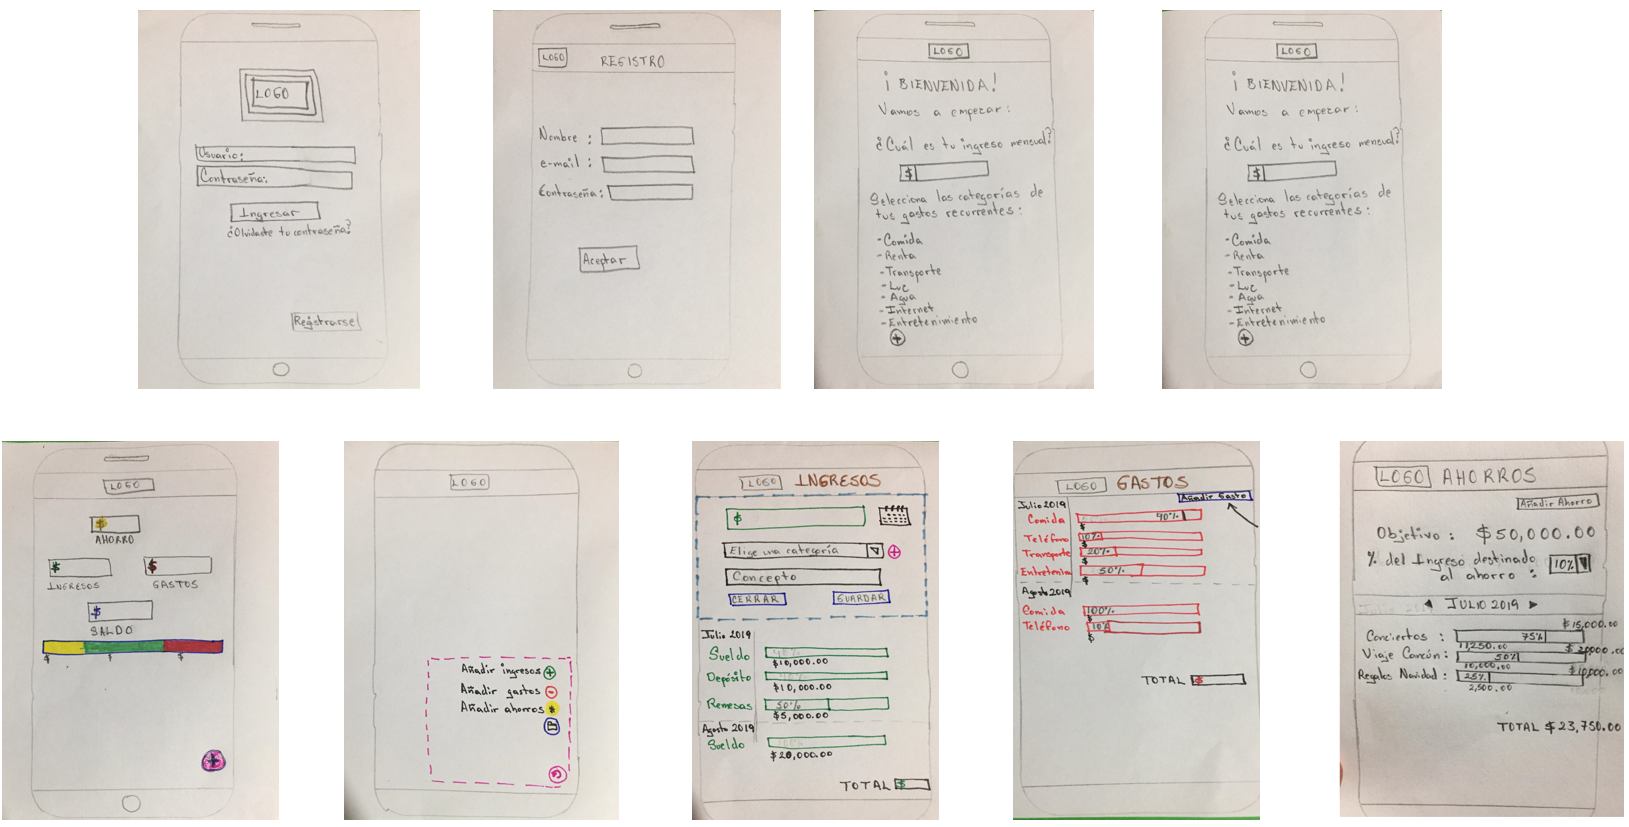 LOGO
Usuario:
Contraseña:
Ingresar
¿Olvidaste tu contraseña?
Registrarse
LOGO
REGISTRO
Nombre :
e-mail :
Contraseña:
Aceptar
LOGO
¡ BIENVENIDA!
Vamos a empezar:
¿Cuál es tu ingreso mensual?
$
Selecciona las categorías de
tus gastos recurrentes:
-Comida
-Renta
-Transporte
-Luz
-Agua
-Internet
-Entretenimiento
+
LOGO
¡ BIENVENIDA!
Vamos a empezar:
¿Cuál es tu ingreso mensual?
$
Selecciona las categorías de
tus gastos recurrentes:
-Comida
-Renta
-Transporte
-Luz
-Agua
-Internet
-Entretenimiento
+
LOGO
$
AHORRO
$ $
INGRESOS GASTOS
$
SALDO
$ $ $
+
LOGO
Añadir ingresos +
Añadir gastos -
Añadir ahorros $
LOGO INGRESOS
$
Elige una categoría
+
Concepto
CERRAR GUARDAR
Julio 2019
Sueldo
$10,000.00
Depósito
$10,000.00
Remesas 50%
$5,000.00
Agosto 2019
Sueldo
$20,000.00
TOTAL $
LOGO GASTOS
Añadir Gasto
Julio 2019
Comida 40%
$
Teléfono 10%
$
Transporte 20%
$
Entretenim 50%
$
Agosto 2019
Comida 100%
$
Teléfono 10%
$
TOTAL $
LOGO AHORROS
Añadir Ahorro
Objetivo : $50,000.00
% del Ingreso destinado
al ahorro : 10%
JULIO 2019
$15,000.00
Conciertos : 75%
11,250.00 $20000.00
Viaje Cancún: 50%
10,000.00 $10,000.00
Regalos Navidad : 25%
2,500.00
TOTAL $23,750.00